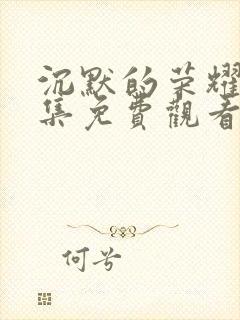 沉默的荣耀
集免費觀看
何兮